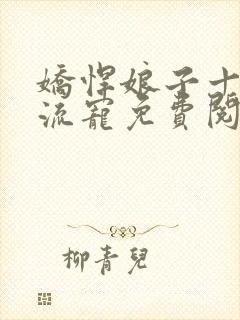 嬌悍娘子十
流寵免費閱
柳青兒